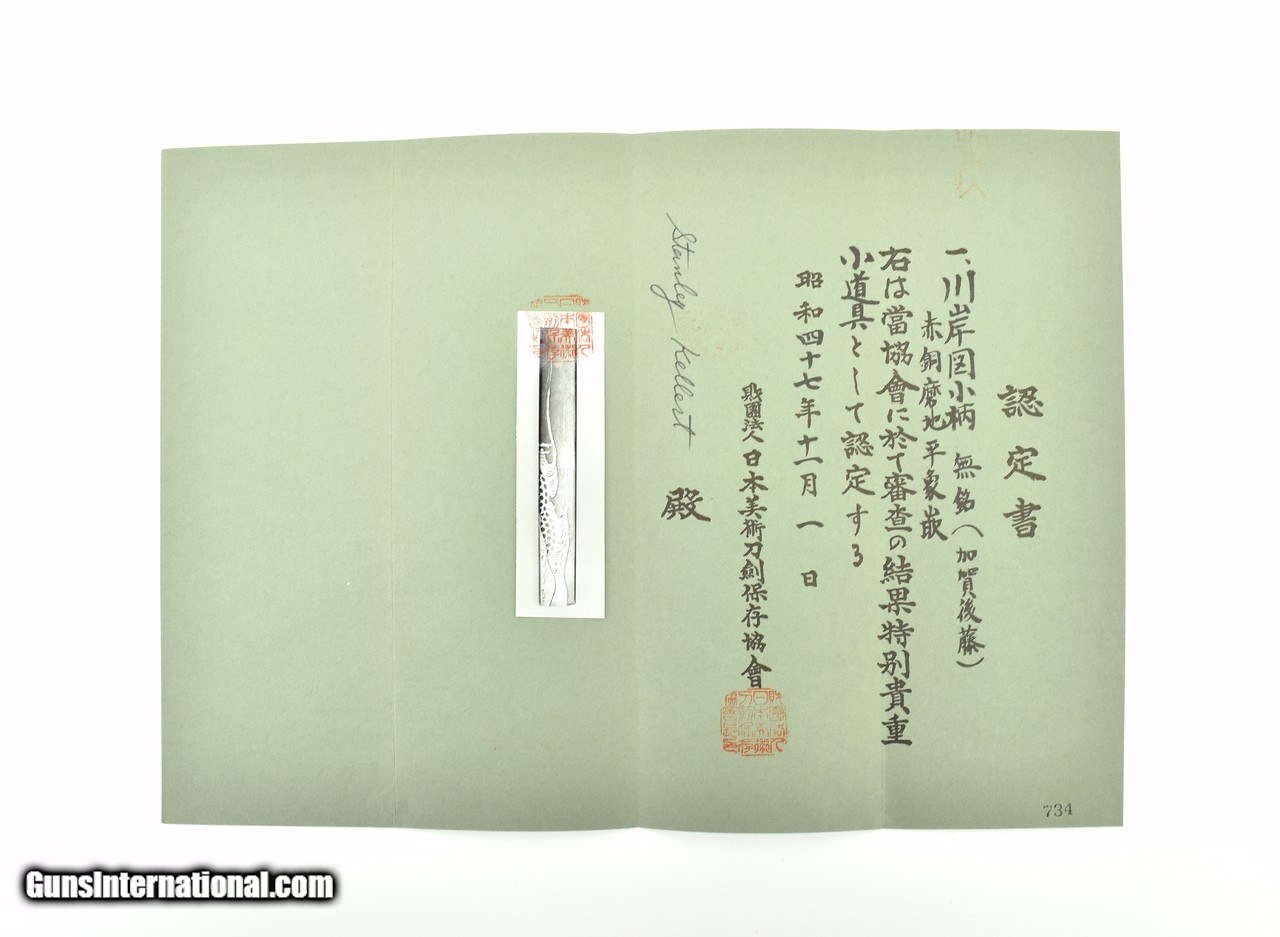 認定書
一、川岸図小柄 無銘(加賀後藤)
赤銅磨地平象嵌
右は當協會に於て審査の結果特別貴重
小道具として認定する
昭和四十七年十一月一日
財團法人日本美術刀劍保存協會
Stanley Kellert 殿
734
GunsInternational.com